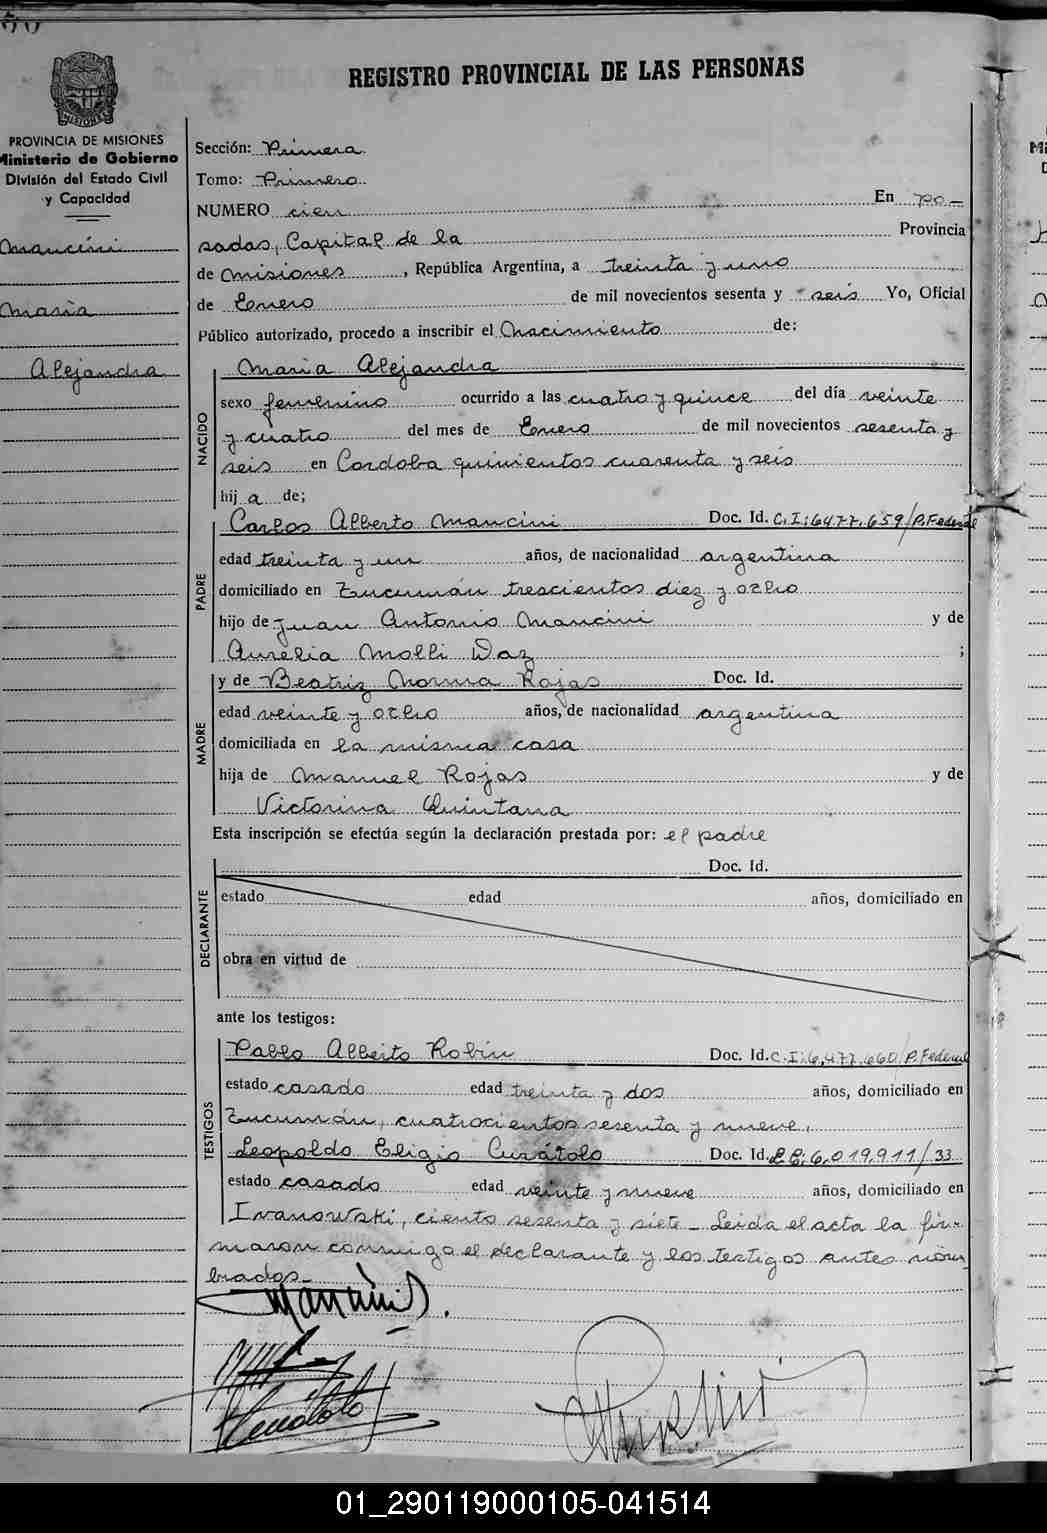 REGISTRO PROVINCIAL DE LAS PERSONAS
PROVINCIA DE MISIONES
Ministerio de Gobierno
División del Estado Civil
y Capacidad
Mancini
Maria
Alejandra
Sección: Primera
Tomo: Primero
NUMERO cien En Po-
sadas, Capital de la Provincia
de Misiones, República Argentina, a treinta y uno
de Enero de mil novecientos sesenta y seis Yo, Oficial
Público autorizado, procedo a inscribir el Nacimiento de:
NACIDO
Maria Alejandra
sexo femenino ocurrido a las cuatro y quince del día veinte
y cuatro del mes de Enero de mil novecientos sesenta y
seis en Cordoba quinientos cuarenta y seis
hij a de;
PADRE
Carlos Alberto Mancini Doc. Id. C.I:6477.659/P.Federal
edad treinta y un años, de nacionalidad argentina
domiciliado en Tucumán trescientos diez y ocho
hijo de Juan Antonio Mancini y de
Aurelia Molli Daz ;
MADRE
y de Beatriz Norma Rojas Doc. Id.
edad veinte y ocho años, de nacionalidad argentina
domiciliada en la misma casa
hija de Manuel Rojas y de
Victorina Quintana
Esta inscripción se efectúa según la declaración prestada por: el padre
DECLARANTE
Doc. Id.
estado edad años, domiciliado en
obra en virtud de
ante los testigos:
TESTIGOS
Pablo Alberto Robin Doc. Id. C.I:6,477,660/P.Federal
estado casado edad treinta y dos años, domiciliado en
Tucumán, cuatrocientos sesenta y nueve,
Leopoldo Eligio Curátolo Doc. Id. L E: 6,019,911/33
estado casado edad veinte y nueve años, domiciliado en
Ivanowski, ciento sesenta y siete_ Leida el acta la fir-
maron conmigo el declarante y los testigos antes nom-
brados_
Mancini
Curátolo
01_290119000105-041514